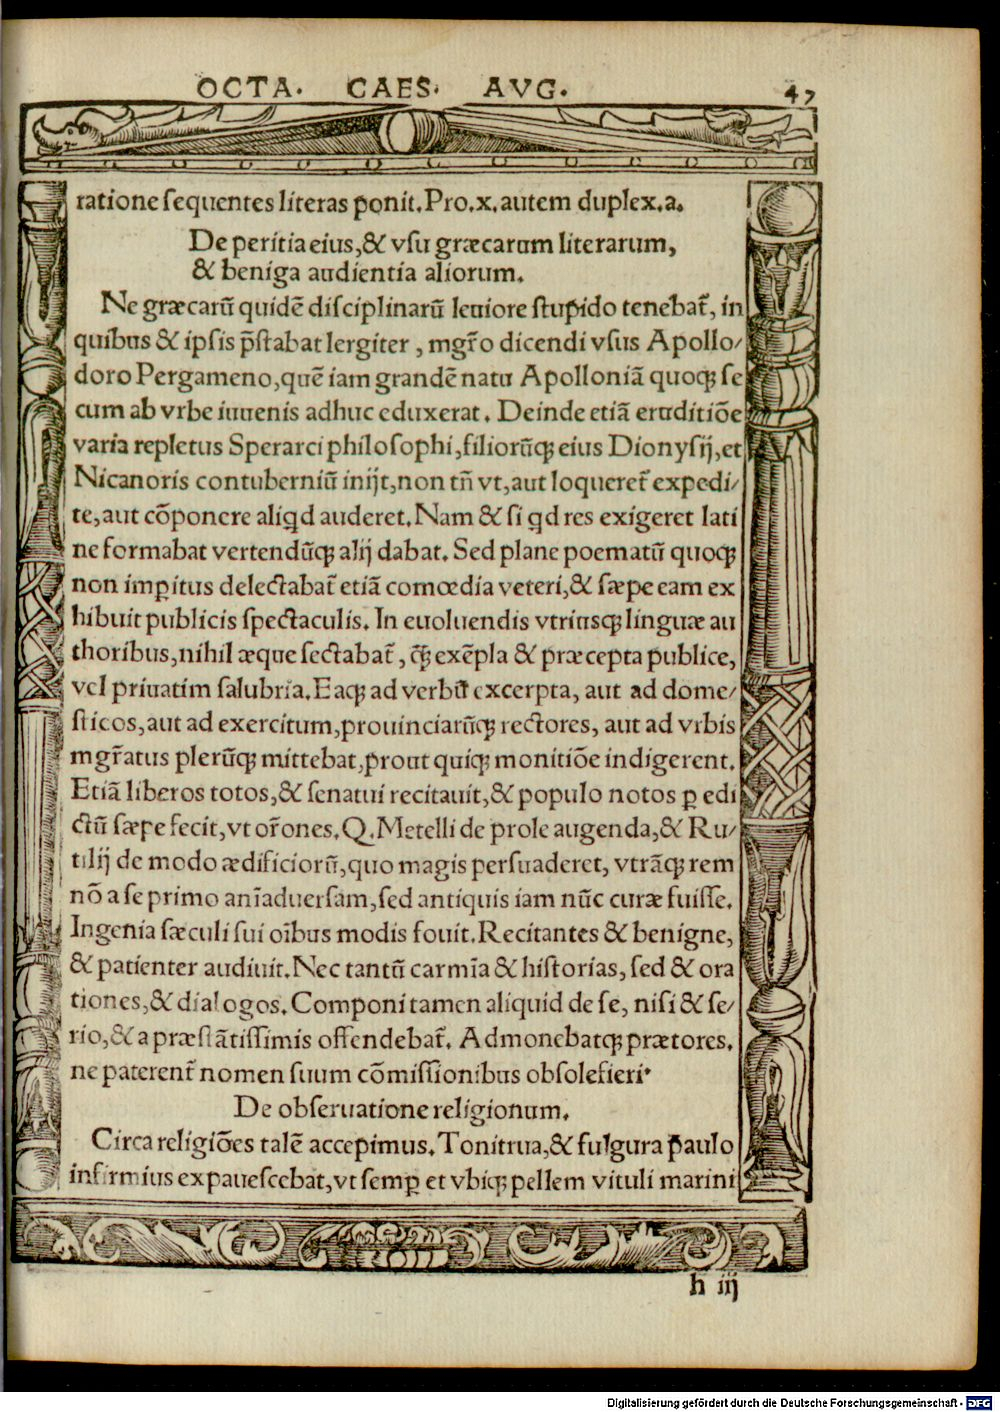 OCTA. CAES. AVG. 47
ratione sequentes literas ponit. Pro.x. autem duplex.a.
De peritia eius, & vsu græcarum literarum,
& beniga audientia aliorum.
Ne græcarū quidē disciplinarū leuiore stupido tenebat̄, in
quibus & ipsis p̄stabat lergiter, mgr̄o dicendi vsus Apollo/
doro Pergameno, quē iam grandē natu Apolloniā quoqꝫ se
cum ab vrbe iuuenis adhuc eduxerat. Deinde etiā eruditiōe
varia repletus Sperarci philosophi, filiorūqꝫ eius Dionysij, et
Nicanoris contuberniū inijt, non tn̄ vt, aut loqueret̄ expedi/
te, aut cōponere aliqd auderet. Nam & si qd res exigeret lati
ne formabat vertendūqꝫ alij dabat. Sed plane poematū quoqꝫ
non imꝑitus delectabat̄ etiā comœdia veteri, & sæpe eam ex
hibuit publicis spectaculis. In euoluendis vtriusqꝫ linguæ au
thoribus, nihil æque sectabat̄, q̄ꝫ exēpla & præcepta publice,
vel priuatim salubria. Eaqꝫ ad verbū excerpta, aut ad dome/
sticos, aut ad exercitum, prouinciarūqꝫ rectores, aut ad vrbis
mgr̄atus plerūqꝫ mittebat, prout quiqꝫ monitiōe indigerent.
Etiā liberos totos, & senatui recitauit, & populo notos ꝑ edi
ctū sæpe fecit, vt or̄ones. Q. Metelli de prole augenda, & Ru/
tilij de modo ædificiorū, quo magis persuaderet, vtrāqꝫ rem
nō a se primo anīaduersam, sed antiquis iam nūc curæ fuisse.
Ingenia sæculi sui oībus modis fouit. Recitantes & benigne,
& patienter audiuit. Nec tantū carmīa & historias, sed & ora
tiones, & dialogos. Componi tamen aliquid de se, nisi & se/
rio, & a præstātissimis offendebat̄. Admonebatqꝫ prætores.
ne paterent̄ nomen suum cōmissionibus obsolefieri.
De obseruatione religionum.
Circa religiōes talē accepimus. Tonitrua, & fulgura paulo
infirmius expauescebat, vt semꝑ et vbiqꝫ pellem vituli marini
h iij
Digitalisierung gefördert durch die Deutsche Forschungsgemeinschaft - DFG